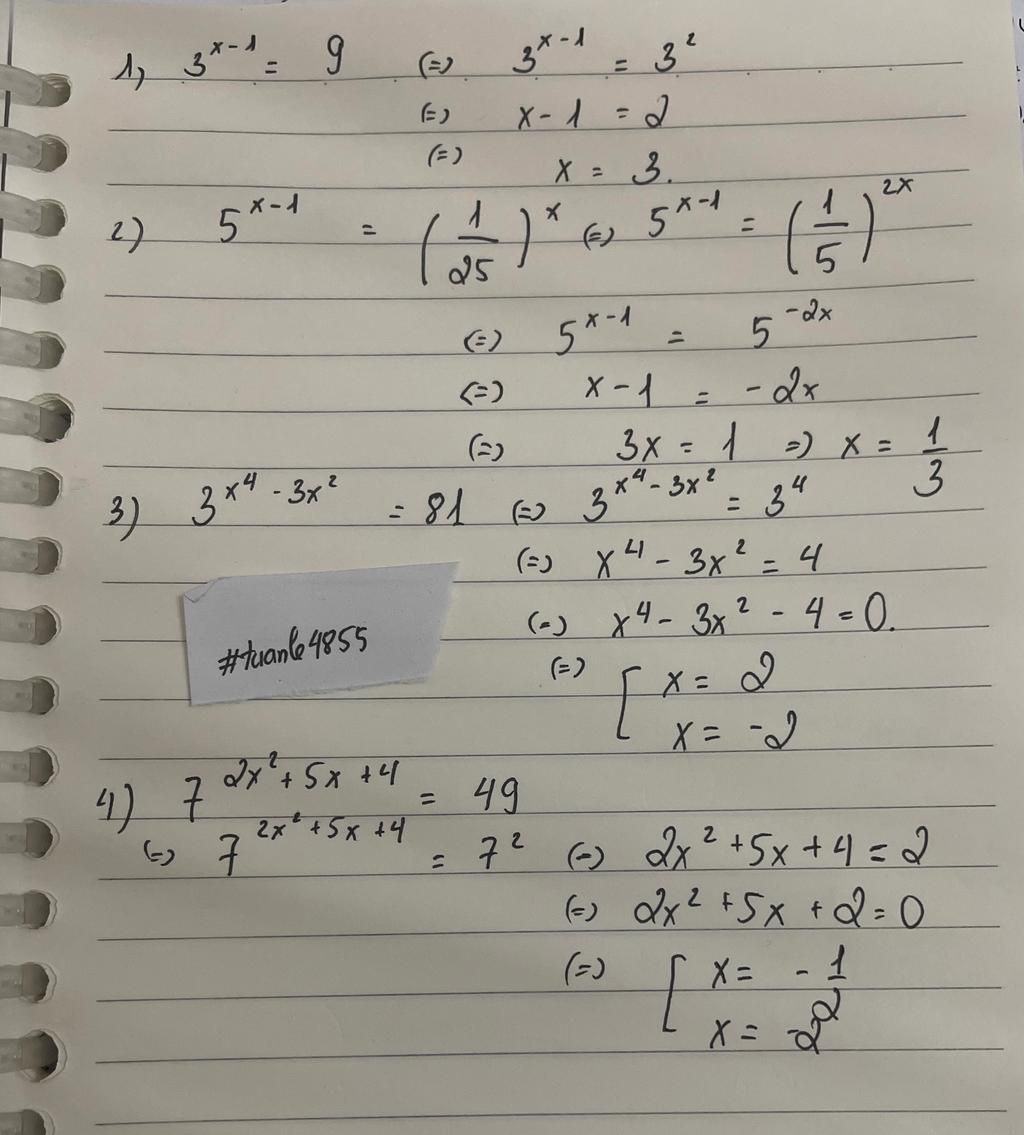 1, 3^{x-1} = 9 (=) 3^{x-1} = 3^2
(=) x - 1 = 2
(=) x = 3.
2) 5^{x-1} = (1/25)^x (=) 5^{x-1} = (1/5)^{2x}
(=) 5^{x-1} = 5^{-2x}
(=) x - 1 = -2x
(=) 3x = 1 =) x = 1/3
3) 3^{x^4 - 3x^2} = 81 (=) 3^{x^4 - 3x^2} = 3^4
(=) x^4 - 3x^2 = 4
(=) x^4 - 3x^2 - 4 = 0.
#tuanle4855
(=) [ x = 2
x = -2
4) 7^{2x^2 + 5x + 4} = 49
(=) 7^{2x^2 + 5x + 4} = 7^2 (=) 2x^2 + 5x + 4 = 2
(=) 2x^2 + 5x + 2 = 0
(=) [ x = -1/2
x = -2